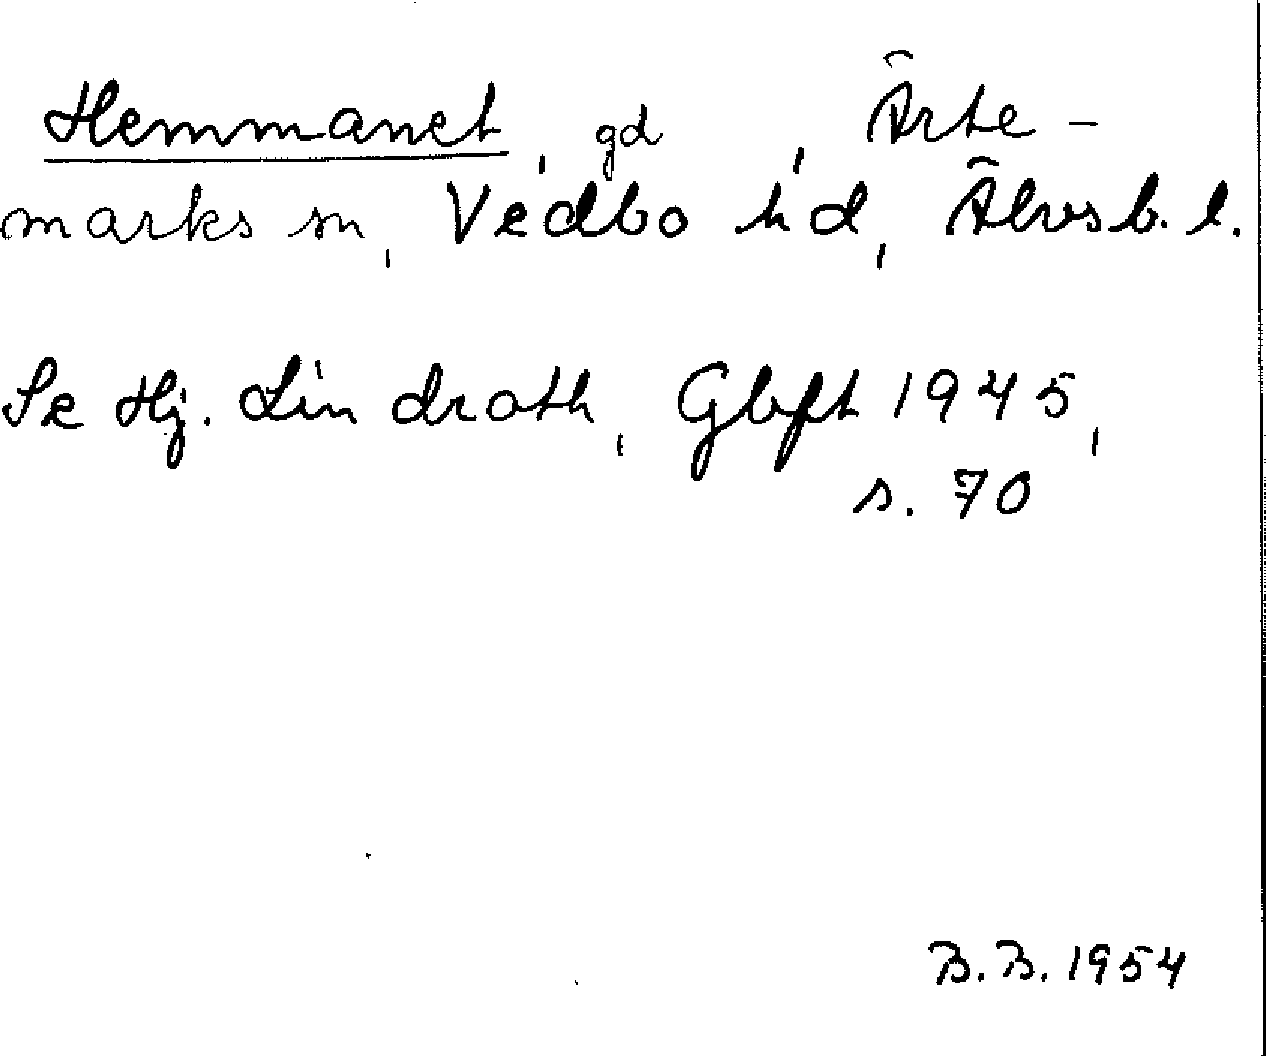 Hemmanet, gd, Ärte-
marks sn, Vedbo hd, Älvsb. l.
Se Hj. Lindroth, Gbgft 1945,
s. 70
B.B. 1954